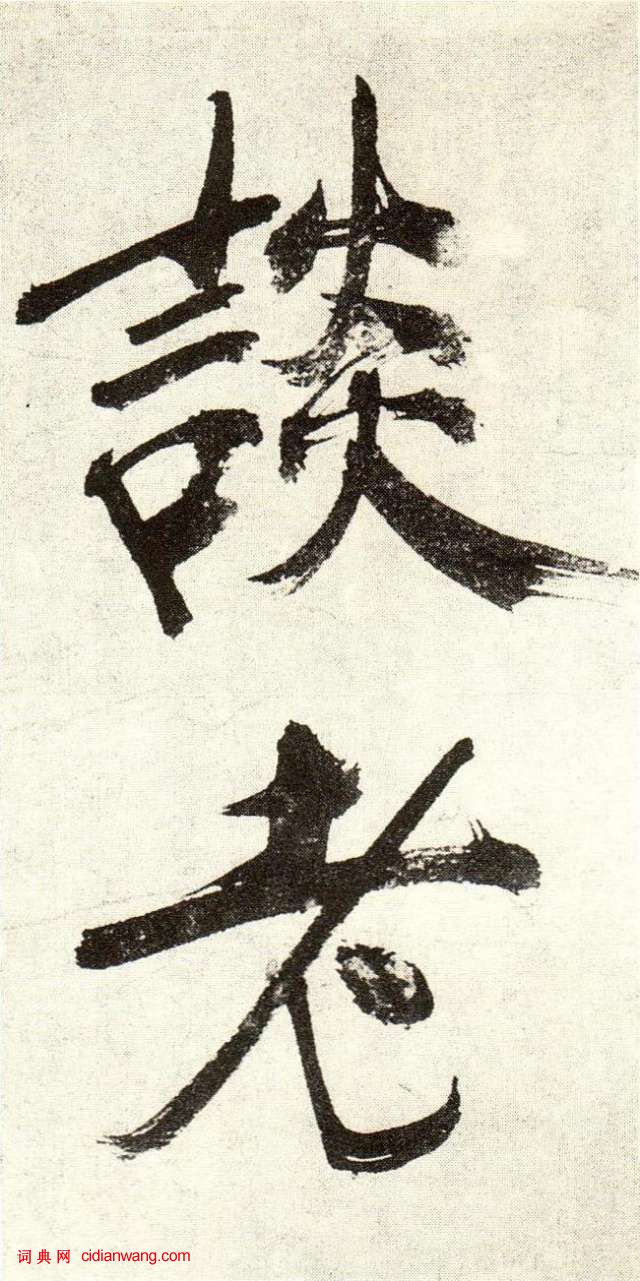 談老
词典网 cidianwang.com